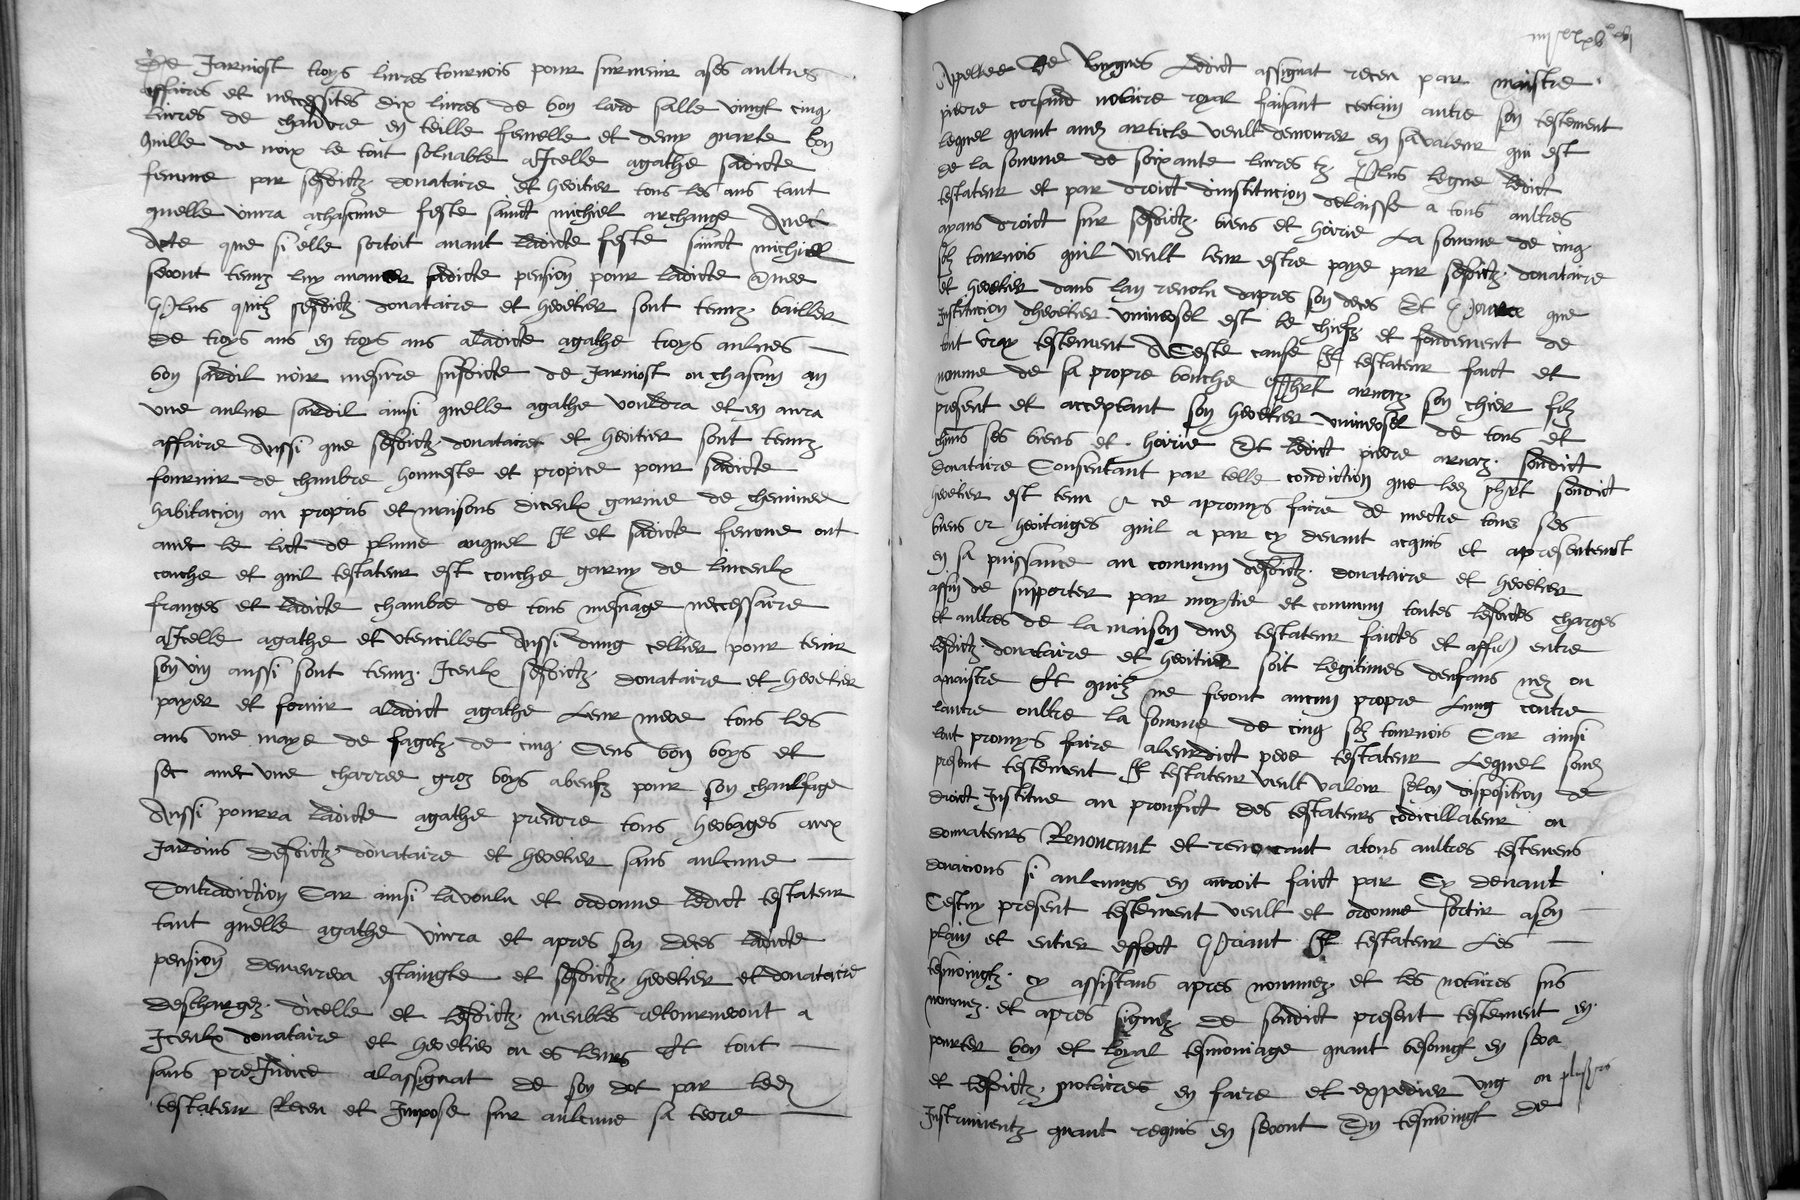 De Jarniost troys livres tournois pour survenir a ses aultres
affaires et necessites dix livres de bon lard salle vingt cinq
livres de chanvre en teille femelle et demy quarte bon
huille de noix le tout solvable a Icelle agathe sadicte
femme par sesdictz donataire et heritier tous les ans tant
quelle vivra a chascune feste sainct michiel archange Avec
Acte que si elle sortoit avant ladicte feste sainct michiel
seront tenuz luy avancer sadicte pension pour ladicte Annee
Plus quilz sesdictz donataire et heritier sont tenuz bailler
de troys ans en troys ans a ladicte agathe troys aulnes
bon sardil noir mesure susdicte de Jarniost ou chascun an
une aulne sardil ainsi quelle agathe vouldra et en aura
affaire Aussi que sesdictz donataires et heritier sont tenuz
fournir de chambre honneste et propice pour sadicte
habitacion au propris et maisons diceulx garnie de cheminee
avec le lict de plume auquel Il et sadicte femme ont
couche et quil testateur est couche garny de linceulx
franges et ladicte chambre de tous mesnage neccessaire
a Icelle agathe et utencilles Aussi dung cellier pour tenir
son vin aussi sont tenuz Iceulx sesdictz donataire et heritier
payer et fornir a ladict agathe Leur mere tous les
ans une maye de fagotz de cinq Cens bon boys et
sec avec une charree groz boys a beufz pour son chaulfage
Aussi pourra ladicte agathe prendre tous herbages aux
Jardins desdictz donataire et heritier sans aulcune
Contradiction Car ainsi la voulu et ordonne ledict testateur
tant quelle agathe vivra et apres son deces ladicte
pension demeurera estaingte et sesdictz heritier et donataire
deschargez dicelle et lesdictz meubles retourneront a
Iceulx donataire et heritier ou es leurs Et tout
sans preJudice a lassignat de son dot par led
testateur Receu et Impose sur aulcune sa terre
Appellee De Buygnes Ledict assignat receu par maistre
pierre corsand notaire royal faisant certain autre son testement
lequel quant aud article veult demourer en sa valeur qui est
de la somme de soixante livres tz Plus legue ledict
testateur et par droict dinstitucion delaisse a tous aultres
ayans droict sur sesdictz biens et hoirie La somme de cinq
solz tournois quil veult leur estre paye par sesdictz donataire
et heritier dans lan revolu dapres son deces Et Pource que
Institucion dheritier universel est le chiefz et fondement de
tout vray testement A Ceste cause Il testateur faict et
nomme de sa propre bouche arnaz son chier filz
present et acceptant son heritier universel de tous et
chuns ses biens et hoirie Et ledict pierre arnaz sondict
donataire Consentant par telle condiction que led sondict
heritier est tenu et ce a promys faire de mectre tous ses
biens et heritaiges quil a par cy devant acquis et a presentement
en sa puissance au commun desdictz donataire et heritier
affin de supporter par moytie et commun toutes lesdictes charges
et aultres de la maison dud testateur faictes et a entre
lesdictz donataire et heritier soit legitimes denfans nez ou
a naistre Et quilz ne feront aucun propre Lung contre
lautre oultre la somme de cinq solz tournois Car ainsi
lont promys faire a leurdict pere testateur Lequel sond
present testement Il testateur veult valoir selon disposition de
droict Institue au prouffict des testateurs codicillateur ou
donnateurs Renoncant et renoncant a tous aultres testemens
donacions si aulcungs en auroit faict par Cy devant
Cestuy present testement veult et ordonne sortir a son
plain et entier effect Priant Il testateur Les
tesmoingtz cy assistans apres nommez et les notaires sus
nommez et apres signez de sondict present testement en
pourter bon et loyal tesmoniage quant besoingt en sera
et lesdictz notaires en faire et expedier ung ou plusieurs
Instrumentz quant requis en seront En tesmoingt de